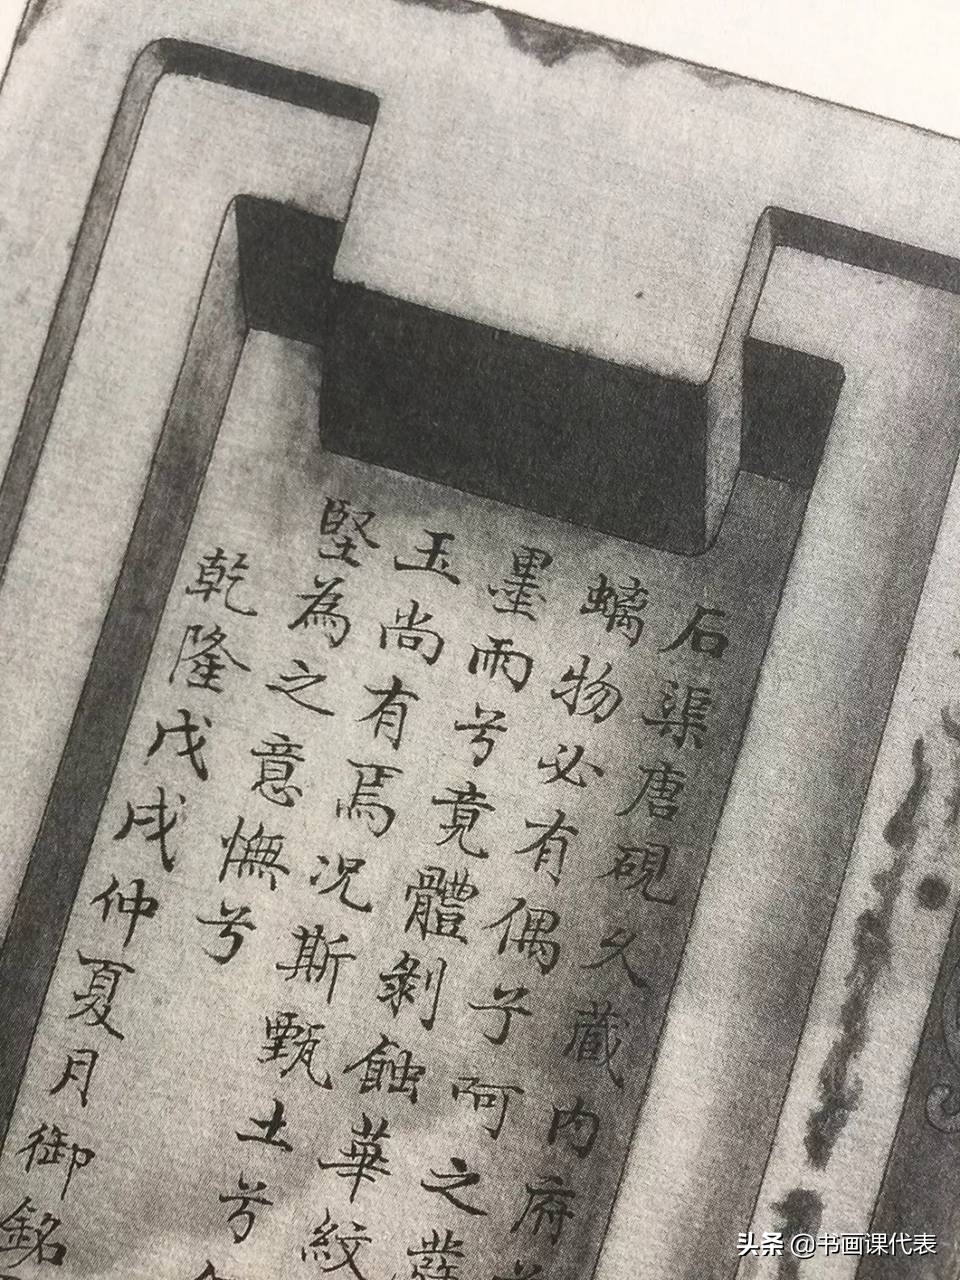 石渠唐硯久藏内府
螭物必有偶子阿之
墨雨兮竟體剝蝕華紋
玉尚有焉況斯甄土兮
堅為之意憮兮
乾隆戊戌仲夏月御銘
头条 @书画课代表